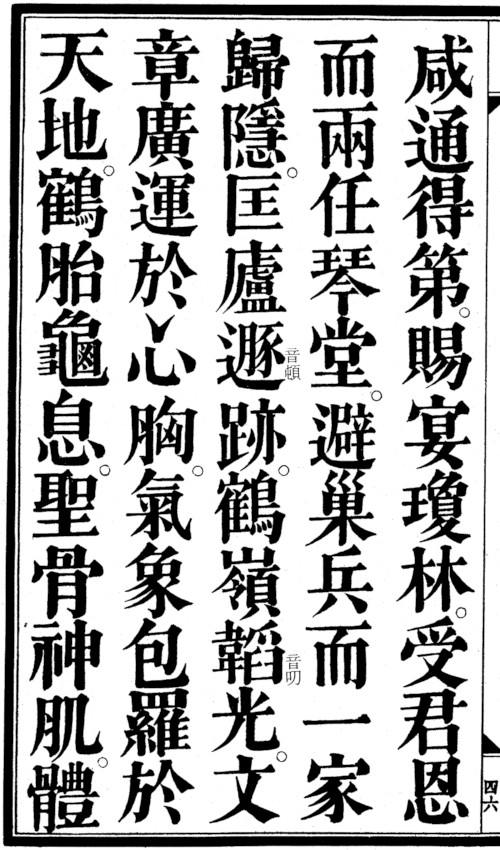 咸通得第。賜宴瓊林。受君恩
而兩任琴堂。避巢兵而一家
歸隱。匡廬遯音頓跡。鶴嶺韜音叨光。文
章廣運於心胸。氣象包羅於
天地。鶴胎龜息。聖骨神肌。體
四六